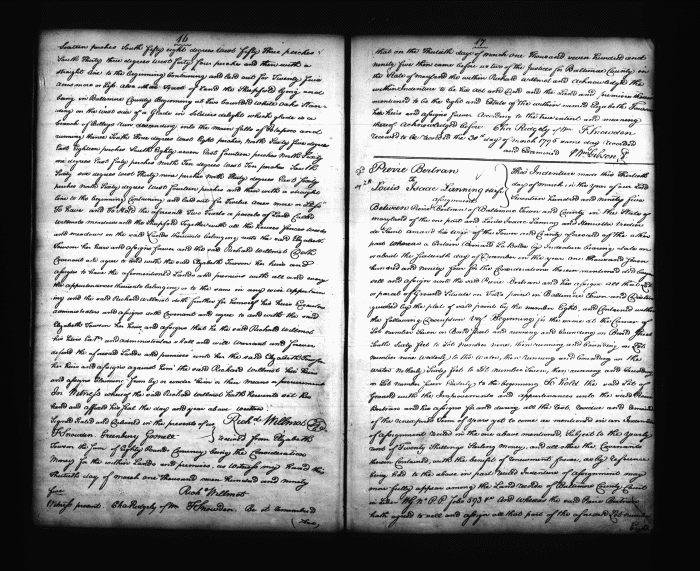 16
Sixteen perches South fifty eight degrees West fifty three perches
South thirty three degrees West forty four perches and then with a
straight line to the beginning Containing and laid out for Twenty four
Acres more or less also that Tract of Land the Sheppherd lying and
being in Baltimore County Beginning at two bounded White Oaks Stan-
ding on the West side of a Glade in Soldiers delight which glade is a
branch of Bellows run descending into the main falls of Patapsco and
running thence South five degrees West eight perches North thirty five degrees
East Eighteen perches South Eighty seven East fourteen perches North thirty
one degrees East forty perches North Ten degrees West Ten perches South
thirty six degrees West thirty nine perches North thirty degrees East forty
perches North thirty degrees West fourteen perches and then with a straight
line to the beginning Containing and laid out for Twelve Acres more or less
To Have and To Hold the aforesaid Two Tracts or parcels of Land Called
Willmots meadow and the Sheppherd Together with all the Houses fences Woods
and meadows on the said Lands thereunto belonging unto the said Elizabeth
Towson her heirs and assigns forever and the said Richard Willmot Doth
Covenant and agree to and with the said Elizabeth Towson her heirs and
assigns to have the aforementioned Lands and premises with all and every
the appurtenances thereunto belonging or to the same in any wise appertain-
ing and the said Richard Willmot doth further for himself his heirs Executors
administrators and assigns Covenant and agree to and with the said
Elizabeth Towson her heirs and assigns that he the said Richard Willmot
his heirs Exts and administrators shall and will warrant and forever
defend the aforesaid Lands and premises unto her the said Elizabeth Towson
her heirs and assigns against him the said Richard Willmot his heirs
and assigns Claiming from by or under him or their means or procurement
In Witness whereof the said Richard Willmot hath hereunto set his
hand and affixed his seal the day and year above written
Signed Sealed and Delivered in the presence of us Richd Willmot
F Snowden. Greenbury Gornell Received from Elizabeth
Towson the Sum of Eighty Pounds Currency being the Consideration
Money for the within Lands and premises, as Witness my Hand the
thirtieth day of march one thousand seven hundred and ninety
five Richd Willmot
Witness present. Cha Ridgely of Wm F Snowden. Be it remembered
17
that on the thirtieth day of march one thousand seven hundred and
ninety five then came before us two of the Justices for Baltimore County in
the State of Maryland the within Richard Willmot and Acknowledged the
within Indenture to be his act and deed and the Lands and premises therein
mentioned to be the right and Estate of the within named Elizabeth Towson
her heirs and assigns forever According to the true intent and meaning
thereof Acknowledged before Cha Ridgely of Wm F Snowden
received to be recorded the 30th day of march 1795 same day recorded
and Examined Wm Gibson Clk
Pierre Bertran
To
Louis Isaac Lanning
assignment
This Indenture made this thirtieth
day of march in the year of our Lord
Seventeen hundred and ninety five
Between Pierre Bertran of Baltimore Town and County in the State of
maryland of the one part and Louis Isaac Lanning and
his wife of the Town and County aforesaid of the other
part Whereas a Certain by Indenture bearing date on
or about the sixteenth day of December in the year one thousand seven
hundred and ninety four for the Considerations therein mentioned did Bargain
sell and assign unto the said Pierre Bertran and his assigns all that Lot
or parcel of Ground Situate on in Baltimore Town and Distin-
guished by the plat of said point by the number Eight, and Contained within
the following Description viz Beginning
Lot number seven on Bond Street and running and bounding on Bond Street
South sixty feet to Lot number nine, then running and bounding on Lot
number nine westerly to the water, then running and bounding on the
water northerly sixty feet to Lot number seven, then running and bounding
on Lot number seven Easterly to the beginning To hold the said Lot of
Ground with the Improvements and appurtenances unto the said Pierre
Bertran and his assigns for and during all the Rest Residue and remainder
of the unexpired Term of years yet to come as above mentioned in an Indenture
of assignment recited in the one above mentioned, Subject to the Yearly
rent of Twenty Shillings Sterling money, and all other the Covenants
therein Contained, with the benefit of renewment forever, as by Reference
being had to the above in part recited Indenture of Assignment may
more fully appear among the Land records of Baltimore County Court
in Liber WG No PP folio 593 &c And whereas the said Pierre Bertran
hath agreed to sell and assign all that part of the aforesaid Lot number
Eight